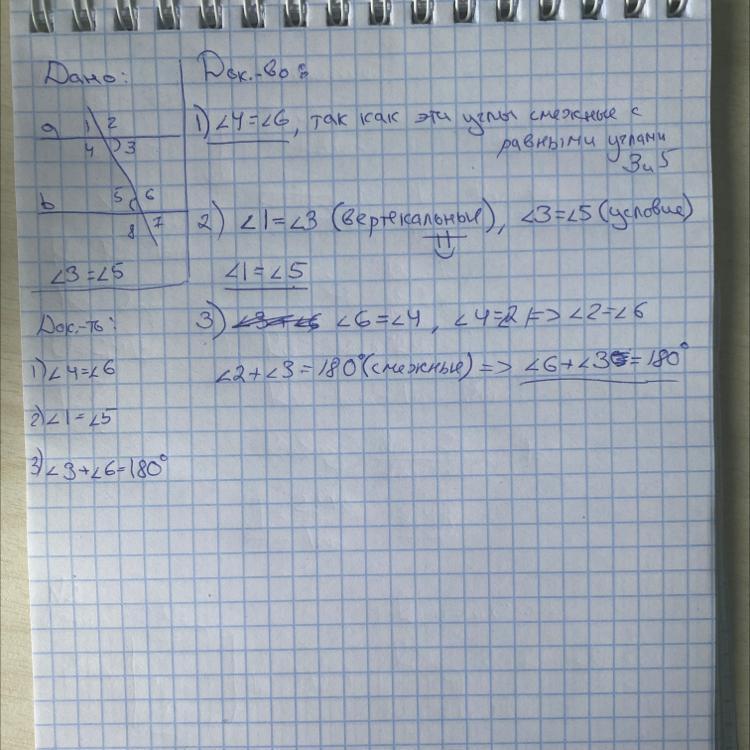 Дано:
a 1 2
4 3
b 5 6
8 7
∠3=∠5
Док.-ть:
1) ∠4=∠6
2) ∠1=∠5
3) ∠3+∠6=180°
Док.-во:
1) ∠4=∠6, так как эти углы смежные с
равными углами
3 и 5
2) ∠1=∠3 (вертекальные), ∠3=∠5 (условие)
∠1=∠5
3) ∠6=∠4, ∠4=2 => ∠2=∠6
∠2+∠3=180° (смежные) => ∠6+∠3=180°